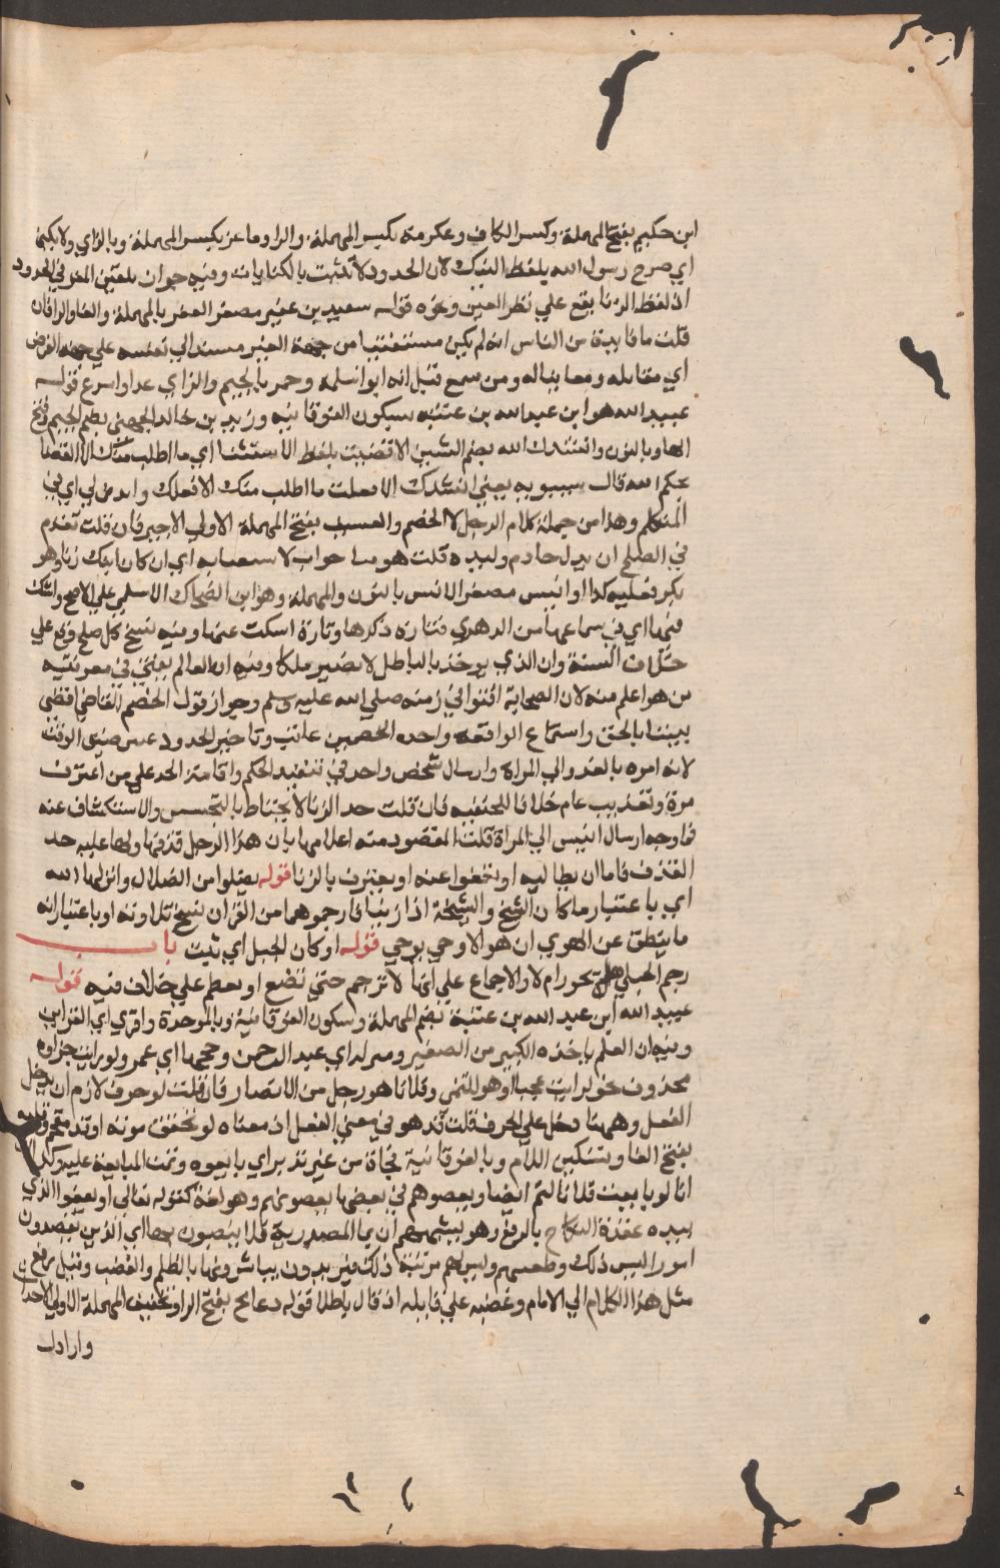 ابن حكيم بفتح المهملة وكسر الكاف وعكرمة بكسر المهملة والرا وماعز بكسر المهملة وبالزاي ولا يكني
اي صرح رسول الله بلفظ النيك لان الحدود لا تثبت بالكنايات وفيه جواز تلقين المقر في الحدود
اذ لفظ الزنا يقع علي نظر العين وغيره قوله سعيد بن عفير مصغر العفر بالمهملة والفا والرا فان
قلت ما فايدة من الناس انه لم يكن مستفتيا من جهة الغير مسندا الي نفسه علي جهة الفرض
اي مقابله ومعاينا له ومن سمع قيل انه ابو اسلمة وجمز بالجيم والزاي عدا واسرع قوله
عبيد الله هو ابن عبد الله بن عتبة بسكون الفوقانية وزيد بن خالد الجهني بضم الجيم وفتح
الها وبالنون وانشدك الله بضم الشين الا قضيت بلفظ الاستثنا اي ما اطلب منك الا القضا
بحكم الله قال سيبويه يعني انشدك الا فعلت ما اطلب منك الا فعلك وايذن لي اي في
التكلم وهذا من جملة كلام الرجل لا الخصم والعسيف بفتح المهملة الاولي الاجير فان قلت تقدم
في الصلح ان بدل خادم وليدة قلت هو جواب لا اي ان كان ابنك زنا وهو
بكر فعليه كذا او انيس مصغر الانس بالنون والمهملة وهو ابن الضحاك الاسلمي علي الاصح واشك
فيها اي في سماعها من الزهري فتارة ذكرها وتارة اسكت عنها وفيه نسخ كل صلح وقع علي
خلاف السنة وان الذي يوخذ بالباطل لا يصير ملكا وفيه ان العالم يفتي في
من هو اعلم منه لان الصحابة افتوا في زمنه صلي الله عليه وسلم وجواز قول الخصم للقاضي اقض
بيننا بالحق واستماع الواقعة واحد الخصمين غايب وتاخير الحدود عند ضيق الوقت
لانه امره بالغدو الي المراة وارسال شخص واحد في تنفيذ الحكم واقامة الحد علي من اعترف
مرة وتغريب عام خلافا للحنفية فان قلت حد الزنا لا يحتاط بالتجسس والاستكشاف عنه
فما وجه ارسال انيس الي المراة قلت المقصود منه اعلامها بان هذا الرجل قذفها ولها عليه حد
القذف فاما ان يطالبه او تعفوا عنه او يعترف بالزنا قوله يضلوا من الضلال وانزلها الله
اي باعتبار ما كان الشيخ والشيخة اذا زنيا فارجموهما من القران نسخ تلاوته او باعتبار انه
ما ينطق عن الهوي ان هو الا وحي يوحي قوله او كان الحبل اي ثبت باب
رجم الحبلي هل تجوز ام لا والاجماع علي انها لا ترجم حتي تضع او تفطم علي خلاف فيه قوله
عبيد الله ابن عبد الله بن عتبة بضم المهملة وسكون الفوقانية وبالموحدة واقري اي القراين
وفيه ان العلم ياخذه الكبير من الصغير ومنزله اي عبد الرحمن وحجها اي عمر ولو رايت جزاوه
محذوف نحو لرايت عجبا او هو للتمني وفلانا هو رجل من الانصار فان قلت لو حرف لازم ان يدخل
الفعل وههنا دخل علي الحرف قلت قد هو في معني الفعل اذ معناه لو تحقق موته او قد مقحم
بفتح الفا وتسكين اللام وبالفوقانية فجاة من غير تدبر اي بايعوه وتمت المبايعة عليه
انا لو بايعت فلانا لتم ايضا ويعصوهم في بعضها يعصونهم وهو لغة كقوله تعالي او يعفوا الذي
بيده عقدة النكاح بالرفع وهو تشبيههم ان بما المصدرية فلا ينصبون بها اي الذين يقصدون
امورا ليس ذلك وظيفتهم وليس لهم مرتبة ذلك فيريدون يباشرونها بالظلم والغضب وقيل رفع
مثل هذا الكلام الي الامام وغضبه علي قايله اذ قال باطلا قوله رعاع بفتح الرا وتخفيف المهملة الاولي الاحداث
واراذل